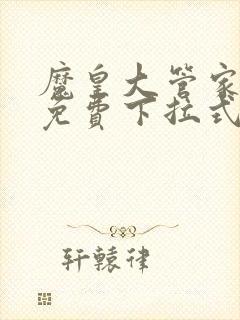 魔皇大管家
免費下拉式
轩辕律